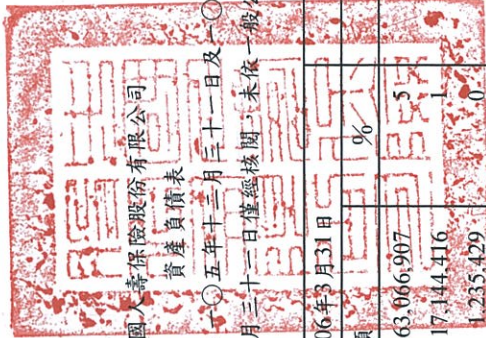 國人壽保險股份有限公司
資產負債表
一〇五年十二月三十一日及一〇
月三十一日僅經核閱，未依一般公
06年3月31日
額 %
63,066,907 5
17,144,416 1
1,235,429 0